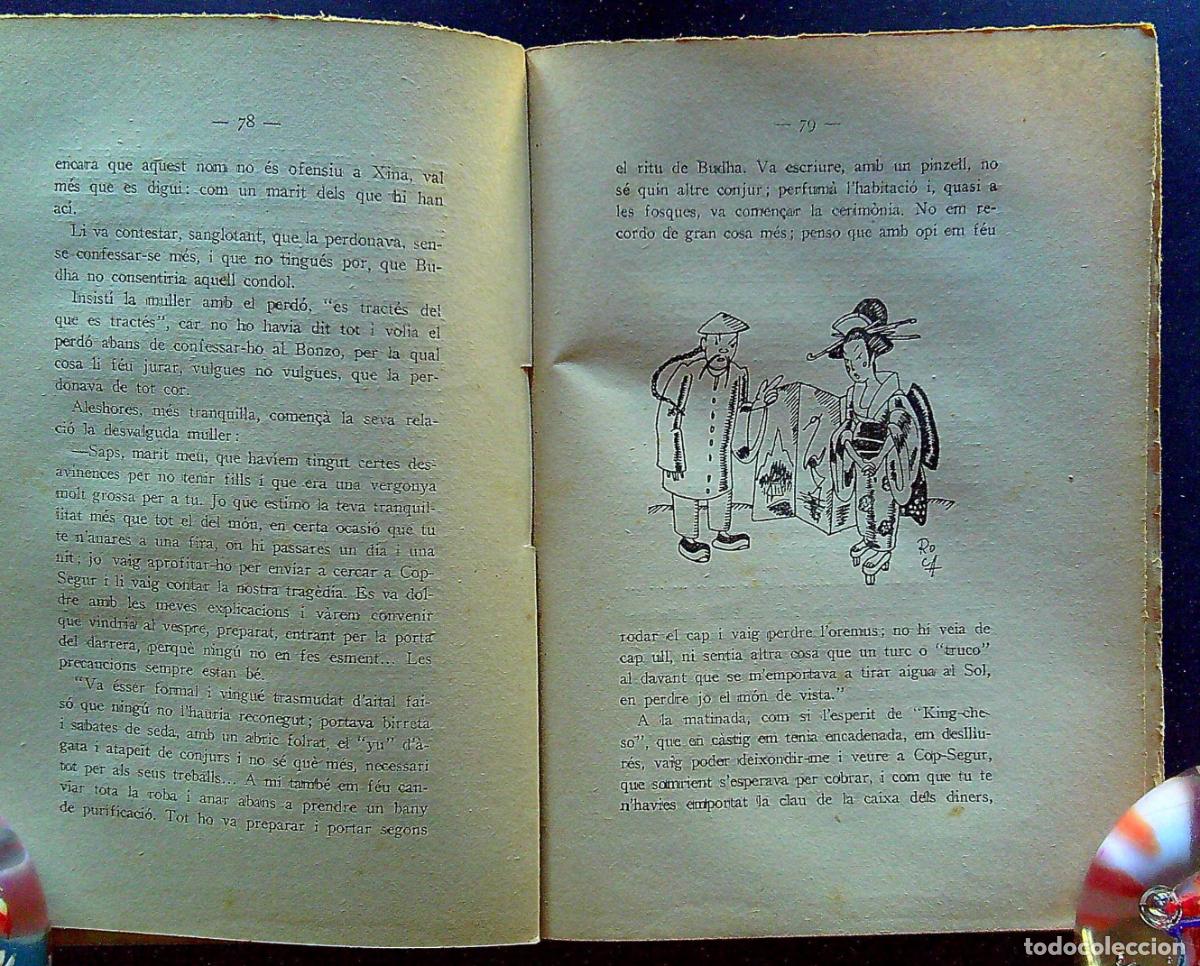 — 78 —
encara que aquest nom no és ofensiu a Xina, val
més que es digui: com un marit dels que hi han
ací.
Li va contestar, sanglotant, que la perdonava, sen-
se confessar-se més, i que no tingués por, que Bu-
dha no consentiria aquell condol.
Insistí la muller amb el perdó, "es tractés del
que es tractés", car no ho havia dit tot i volia el
perdó abans de confessar-ho al Bonzo, per la qual
cosa li féu jurar, vulgues no vulgues, que la per-
donava de tot cor.
Aleshores, més tranquilla, començà la seva rela-
ció la desvalguda muller:
—Saps, marit meu, que havíem tingut certes des-
avinences per no tenir fills i que era una vergonya
molt grossa per a tu. Jo que estimo la teva tranquil-
litat més que tot el del món, en certa ocasió que tu
te n'anares a una fira, on hi passares un dia i una
nit; jo vaig aprofitar-ho per enviar a cercar a Cop-
Segur i li vaig contar la nostra tragèdia. Es va dol-
dre amb les meves explicacions i vàrem convenir
que vindria al vespre, preparat, entrant per la porta
del darrera, perquè ningú no en fes esment... Les
precaucions sempre estan bé.
"Va ésser formal i vingué trasmudat d'aital fai-
só que ningú no l'hauria reconegut; portava birreta
i sabates de seda, amb un abric folrat, el "yu" d'à-
gata i atapeit de conjurs i no sé què més, necessari
tot per als seus treballs... A mi també em féu can-
viar tota la roba i anar abans a prendre un bany
de purificació. Tot ho va preparar i portar segons
— 79 —
el ritu de Budha. Va escriure, amb un pinzell, no
sé quin altre conjur; perfumà l'habitació i, quasi a
les fosques, va començar la cerimònia. No em re-
cordo de gran cosa més; penso que amb opi em féu
ROCA
rodar el cap i vaig perdre l'oremus; no hi veia de
cap ull, ni sentia altra cosa que un turc o "truco"
al davant que se m'emportava a tirar aigua al Sol,
en perdre jo el món de vista."
A la matinada, com si l'esperit de "King-che-
so", que en càstig em tenia encadenada, em deslliu-
rés, vaig poder deixondir-me i veure a Cop-Segur,
que somrient s'esperava per cobrar, i com que tu te
n'havies emportat la clau de la caixa dels diners,
todocoleccion